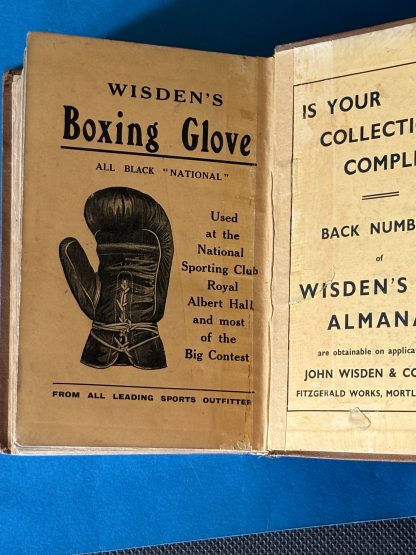 WISDEN'S
Boxing Glove
ALL BLACK "NATIONAL"
Used
at the
National
Sporting Club
Royal
Albert Hall
and most
of the
Big Contest
FROM ALL LEADING SPORTS OUTFITTER
IS YOUR
COLLECTIO
COMPLE
BACK NUMB
of
WISDEN'S
ALMANA
are obtainable on applica
JOHN WISDEN & CO
FITZGERALD WORKS, MORTL